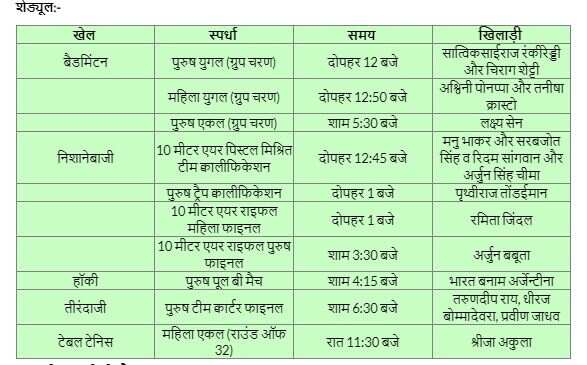 शेड्यूल:-
खेल स्पर्धा समय खिलाड़ी
बैडमिंटन पुरुष युगल (ग्रुप चरण) दोपहर 12 बजे सात्विकसाईराज रंकीरेड्डी
और चिराग शेट्टी
महिला युगल (ग्रुप चरण) दोपहर 12:50 बजे अश्विनी पोनप्पा और तनीषा
क्रास्टो
पुरुष एकल (ग्रुप चरण) शाम 5:30 बजे लक्ष्य सेन
निशानेबाजी 10 मीटर एयर पिस्टल मिश्रित
टीम क्वालीफिकेशन दोपहर 12:45 बजे मनु भाकर और सरबजोत
सिंह व रिदम सांगवान और
अर्जुन सिंह चीमा
पुरुष ट्रैप क्वालीफिकेशन दोपहर 1 बजे पृथ्वीराज तोंडईमान
10 मीटर एयर राइफल
महिला फाइनल दोपहर 1 बजे रमिता जिंदल
10 मीटर एयर राइफल पुरुष
फाइनल शाम 3:30 बजे अर्जुन बबूता
हॉकी पुरुष पूल बी मैच शाम 4:15 बजे भारत बनाम अर्जेन्टीना
तीरंदाजी पुरुष टीम क्वार्टर फाइनल शाम 6:30 बजे तरुणदीप राय, धीरज
बोम्मादेवरा, प्रवीण जाधव
टेबल टेनिस महिला एकल (राउंड ऑफ
32) रात 11:30 बजे श्रीजा अकुला